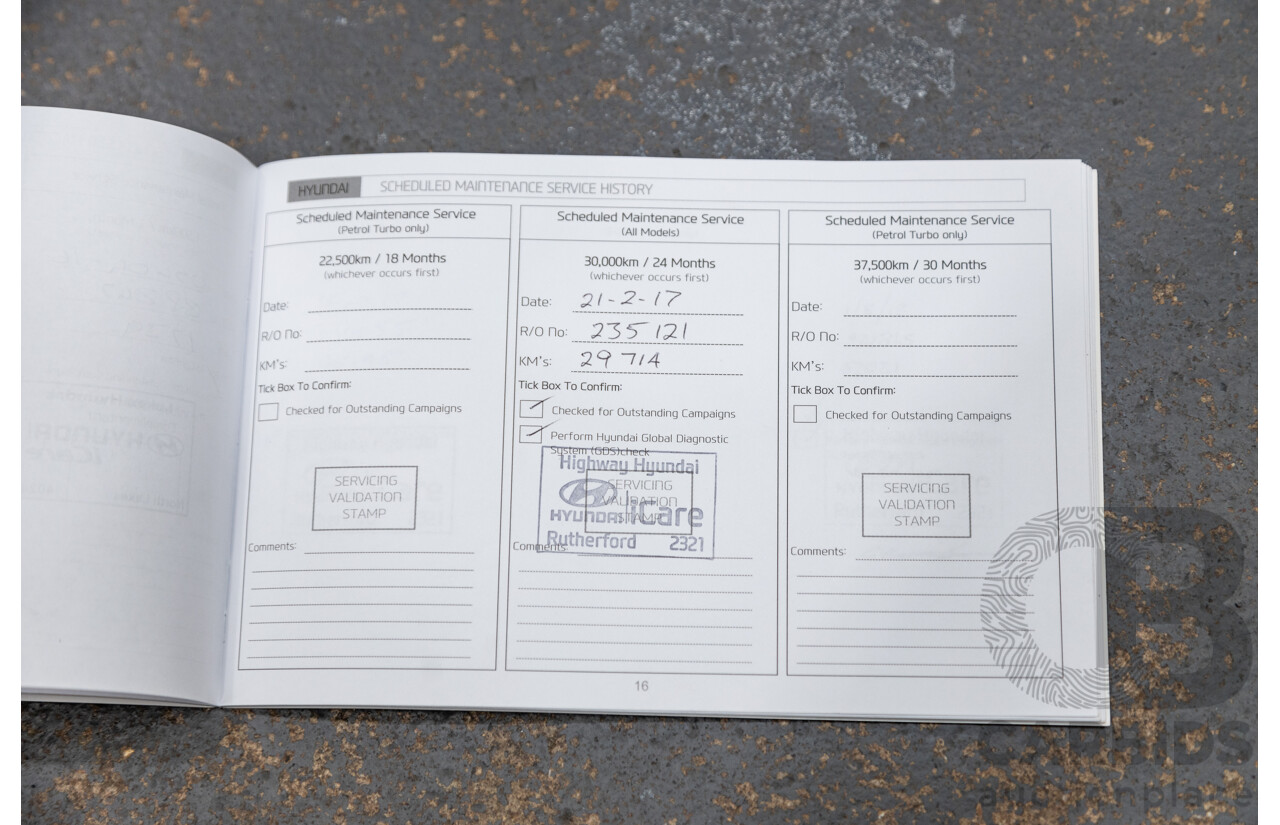 HYUNDAI SCHEDULED MAINTENANCE SERVICE HISTORY
Scheduled Maintenance Service
(Petrol Turbo only)
22,500km / 18 Months
(whichever occurs first)
Date:
R/O No:
KM's:
Tick Box To Confirm:
Checked for Outstanding Campaigns
SERVICING
VALIDATION
STAMP
Comments:
Scheduled Maintenance Service
(All Models)
30,000km / 24 Months
(whichever occurs first)
Date: 21-2-17
R/O No: 235 121
KM's: 29 714
Tick Box To Confirm:
Checked for Outstanding Campaigns
Perform Hyundai Global Diagnostic
System (GDS)check
Highway Hyundai
SERVICING
VALIDATION
STAMP
HYUNDAI iCare
Rutherford 2321
Comments:
Scheduled Maintenance Service
(Petrol Turbo only)
37,500km / 30 Months
(whichever occurs first)
Date:
R/O No:
KM's:
Tick Box To Confirm:
Checked for Outstanding Campaigns
SERVICING
VALIDATION
STAMP
Comments:
16
CB